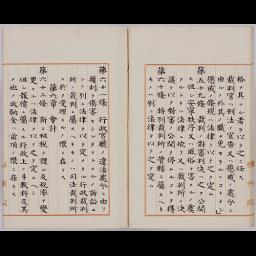 格ヲ具フル者ヲ以テ之ニ任ス
裁判官ハ刑法ノ宣告又ハ懲戒ノ處分ニ
由ルノ外其ノ職ヲ免セラルヽコトナシ
懲戒ノ條規ハ法律ヲ以テ之ヲ定ム
第五十九條 裁判ノ對審判決ハ之ヲ公開ス
但シ安寧秩序又ハ風俗ヲ害スルノ虞
アルトキハ法律ニ依リ又ハ裁判所ノ決
議ヲ以テ對審ノ公開ヲ停ムルコトヲ得
第六十條 特別裁判所ノ管轄ニ屬スヘキ
モノハ別ニ法律ヲ以テ之ヲ定ム
第六十一條 行政官廳ノ違法處分ニ由リ
權利ヲ傷害セラレタリトスルノ訴訟ニ
シテ別ニ法律ヲ以テ定メタル行政裁判
所ノ裁判ニ屬スヘキモノハ司法裁判所ニ
於テ受理スルノ限ニ在ラス
第六章 會計
第六十二條 新ニ租税ヲ課シ及税率ヲ變
更スルハ法律ヲ以テ之ヲ定ムヘシ
但シ報償ニ屬スル行政上ノ手數料及其
ノ他ノ收納金ハ前項ノ限ニ在ラス